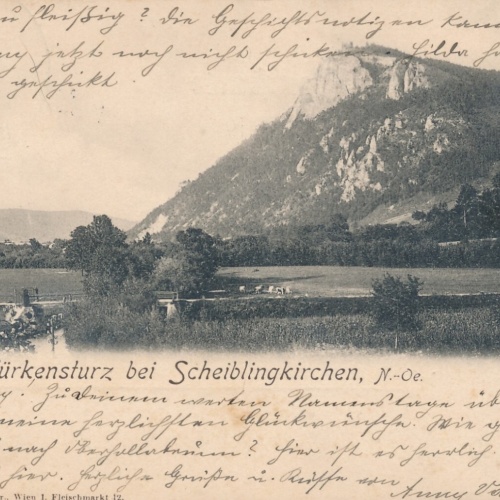 u fleißig? die Geschichtsnotizen kann
jetzt noch nicht schicken. Hilda
geschickt
ürkensturz bei Scheiblingkirchen, N.-Oe.
Zu Deinem werten Namenstage üb
meine herzlichsten Glückwünsche. Wie g
nach Oberhollabrunn? hier ist es herrlich.
hier. herzliche Grüße u. Küsse von
Anny
r., Wien 1. Fleischmarkt 12.